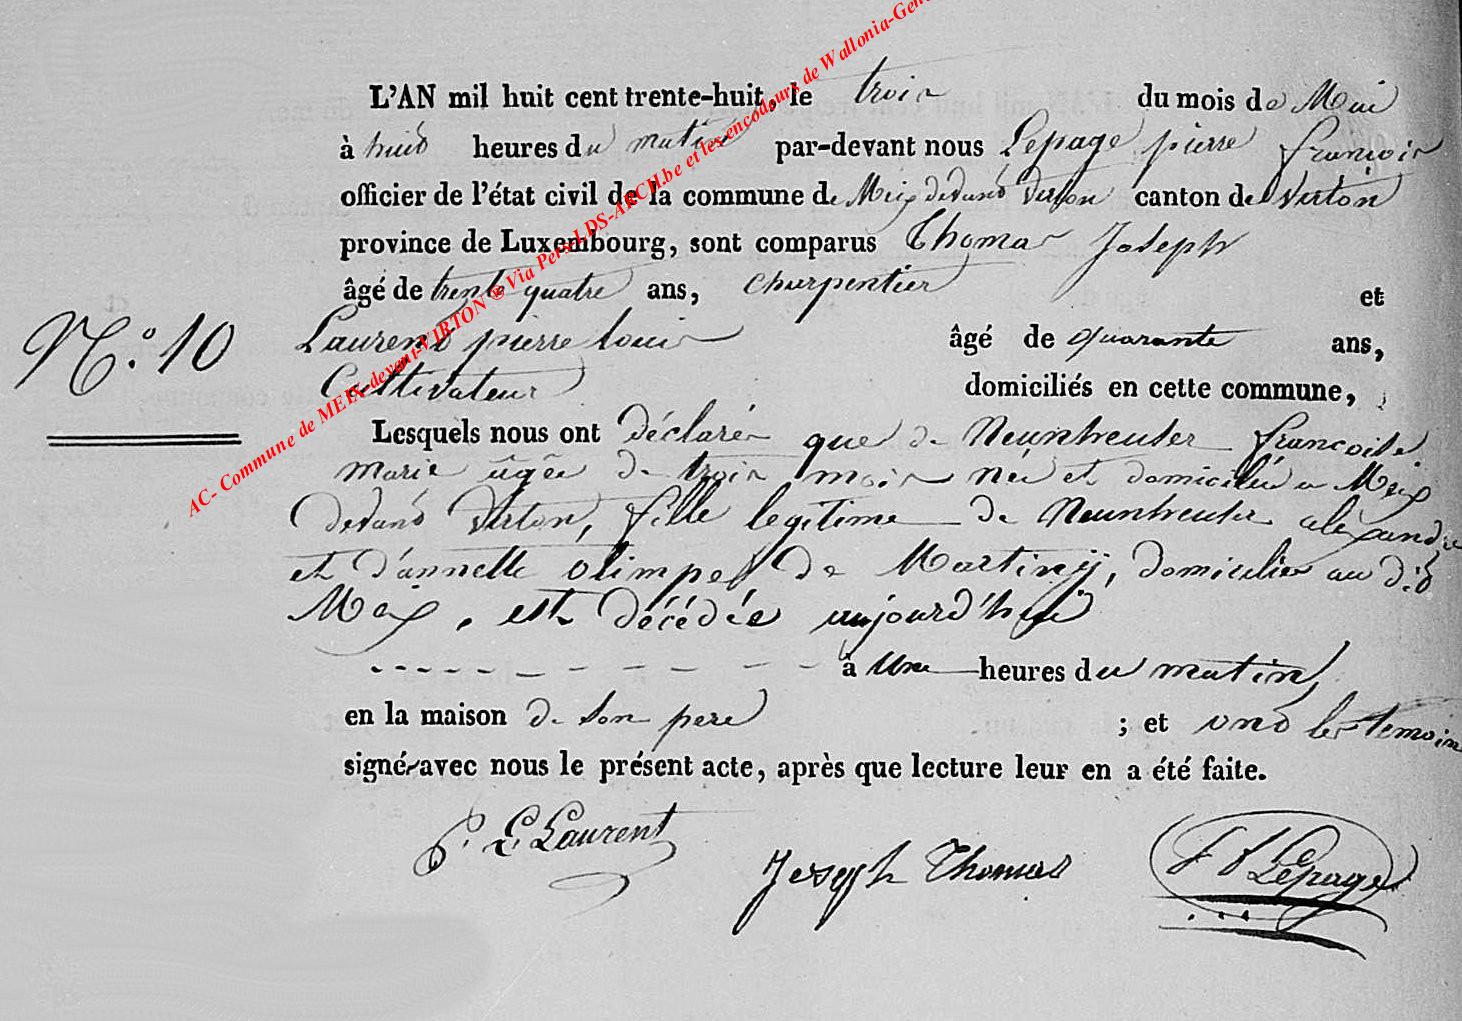 L'AN mil huit cent trente-huit, le trois du mois de Mai
à huit heures du matin par-devant nous Lepage pierre françois
officier de l'état civil de la commune de Meix devant Virton canton de Virton
province de Luxembourg, sont comparus Thomas Joseph
âgé de trente quatre ans, charpentier et
Laurent pierre louis âgé de quarante ans,
Cultivateur domiciliés en cette commune,
N.° 10
Lesquels nous ont déclarés que de Neunheuser françoise
marie âgée de trois mois née et domiciliée a Meix
devant Virton, fille legitime de Neunheuser alexandre
et d'annette olimpe de Martiny, domiciliés au dit
Meix, est décédée aujourd'hui
à Une heures du matin,
en la maison de son pere ; et ont les temoins
signés avec nous le présent acte, après que lecture leur en a été faite.
P. L. Laurent
Joseph Thomas
Lepage
AC- Commune de MEIX-devant-VIRTON ® Via Pers LDS-ARCH.be et les encodeurs de Wallonia-Gen